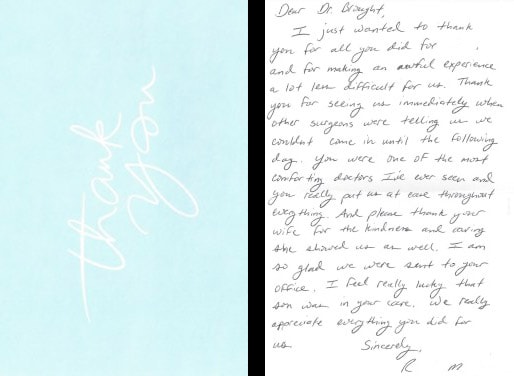 thank
you
Dear Dr. Brought,
I just wanted to thank
you for all you did for
and for making an awful experience
a lot less difficult for us. Thank
you for seeing us immediately when
other surgeons were telling us we
couldnt come in until the following
day. You were one of the most
comforting doctors I've ever seen and
you really put us at ease throughout
everything. And please thank your
wife for the kindness and caring
she showed us as well. I am
so glad we were sent to your
office. I feel really lucky that
son was in your care. We really
appreciate everything you did for
us Sincerely,
R M